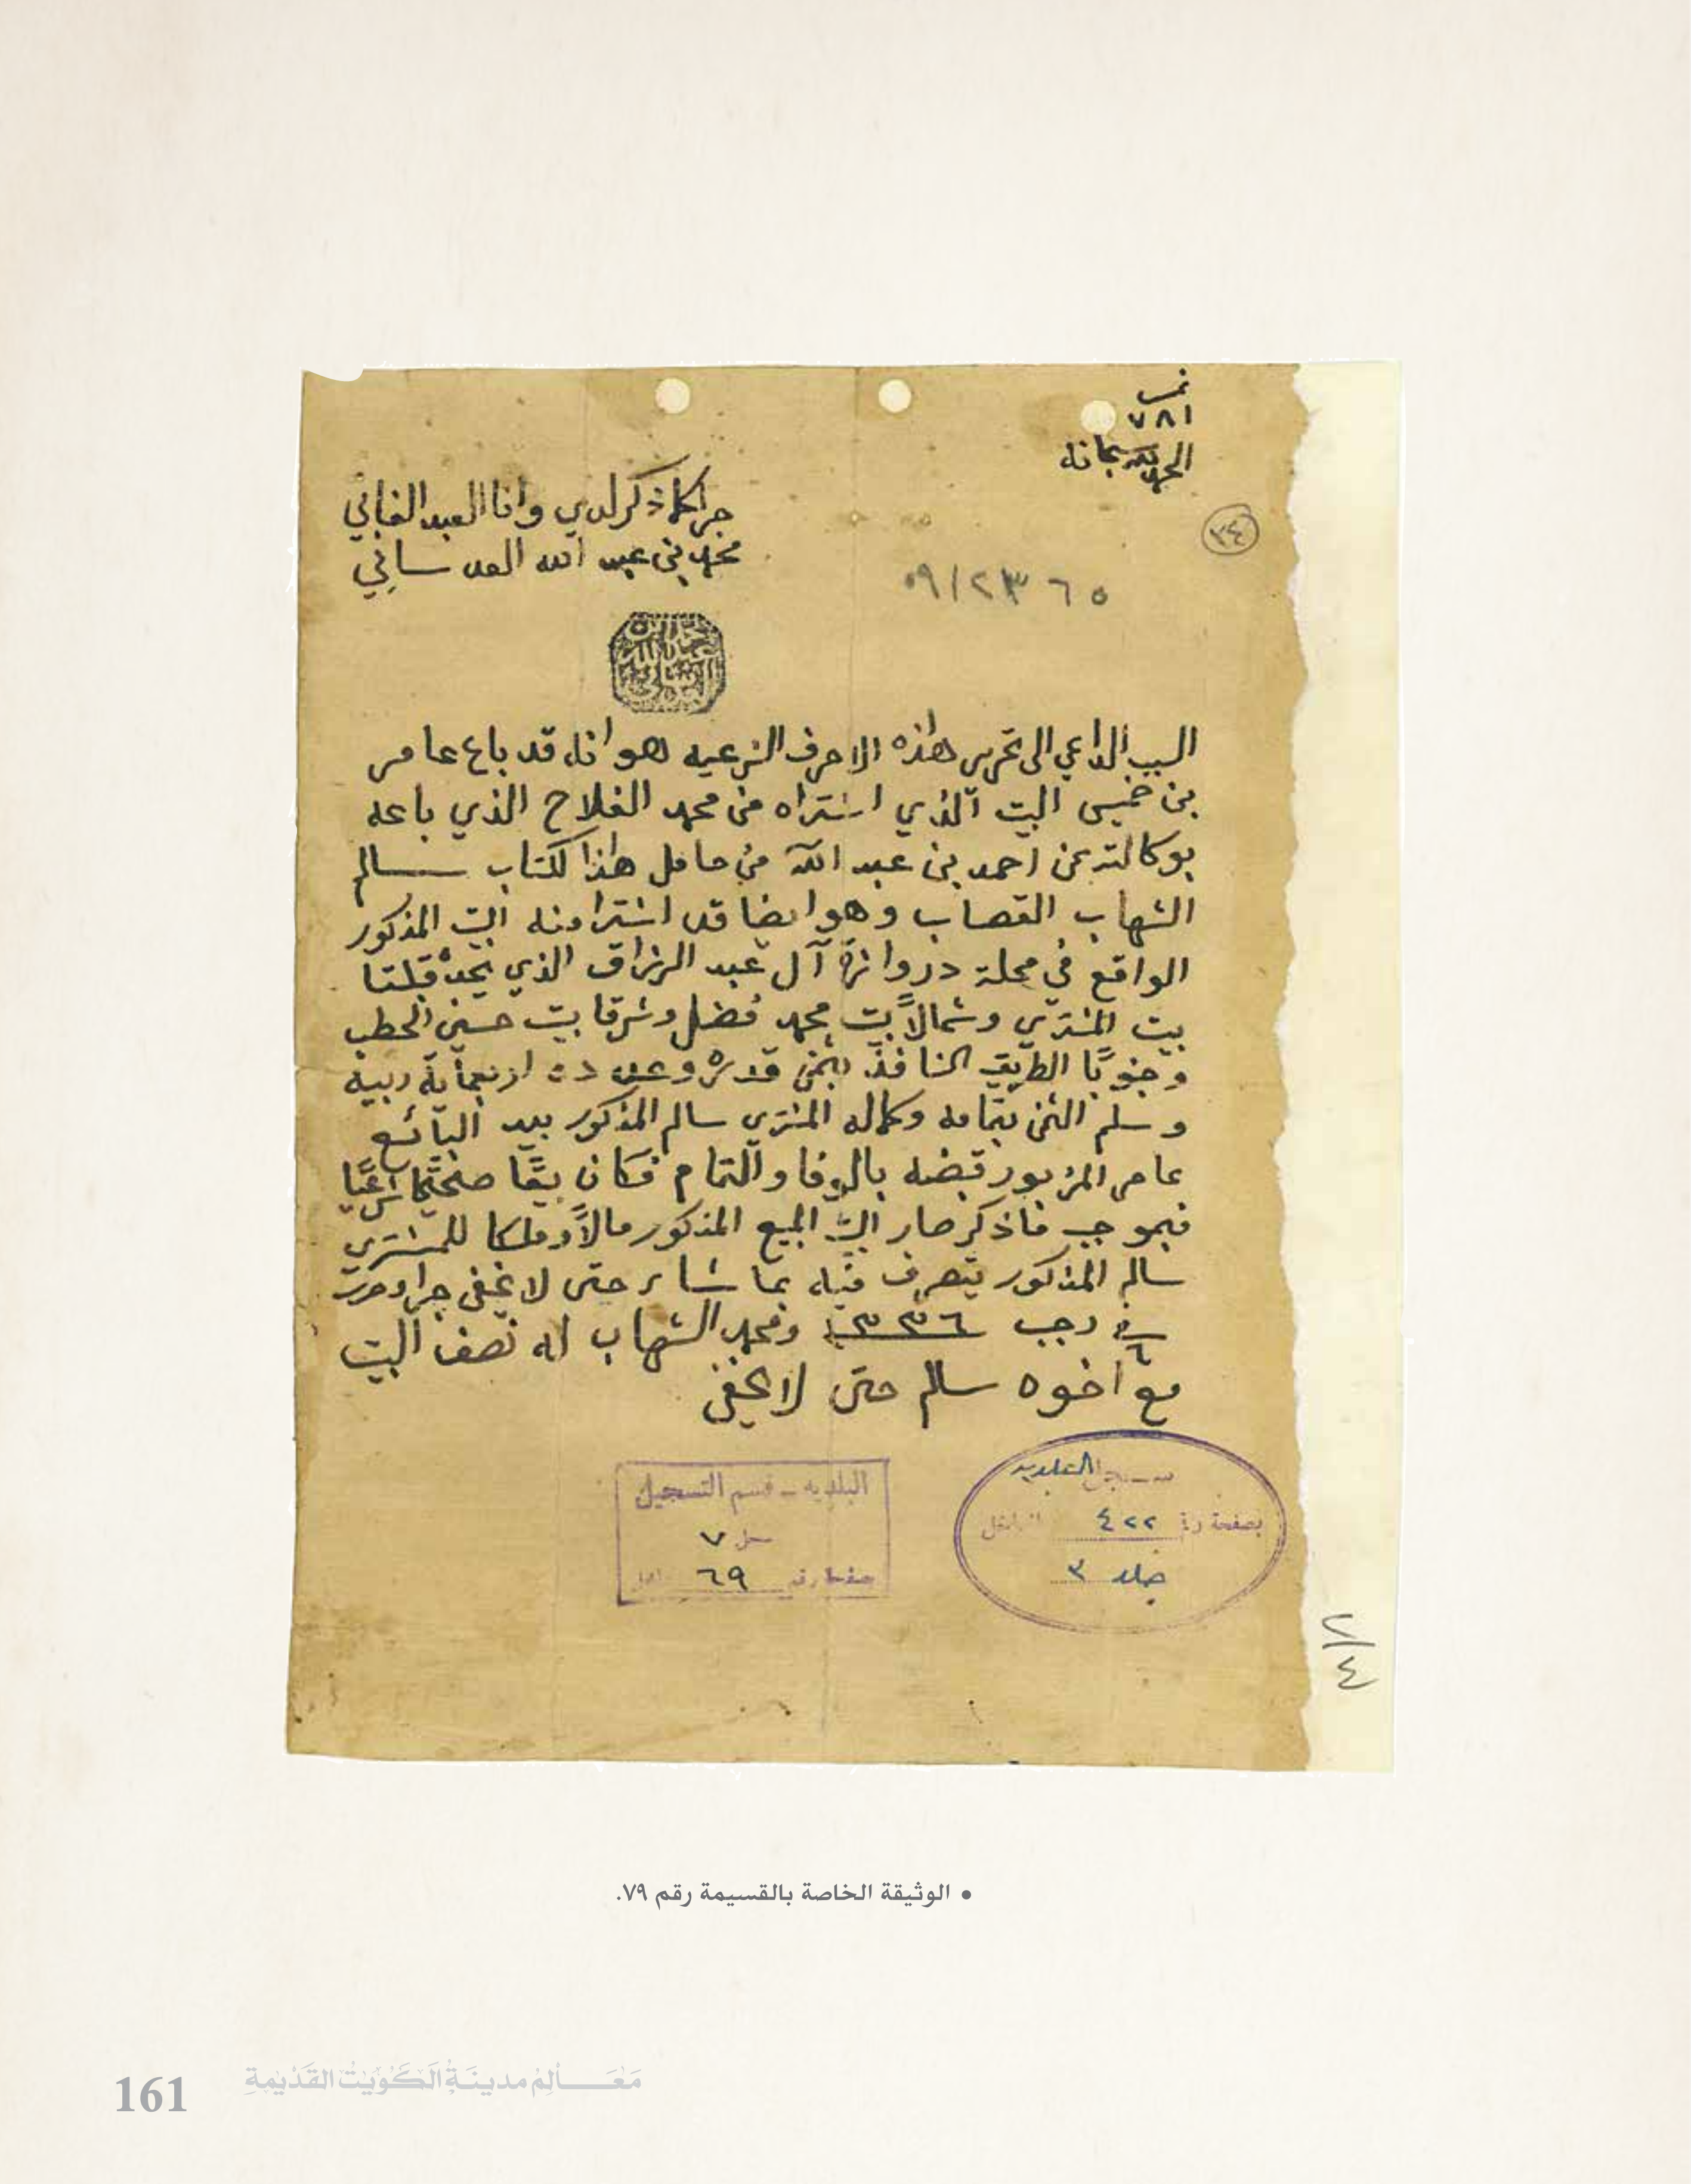 نمر
٧٨١
الحمد لله سبحانه
جرا كما ذكر لدي وانا العبد الفاني
محمد بن عبد الله العدساني
٣٤
٠٩/٢٣٦٥
السبب الداعي الى تحرير هذه الاحرف الشرعيه هو انه قد باع عامر
بن خميس البيت الذي اشتراه من محمد الفلاح الذي باعه
بوكالته عن احمد بن عبد الله من حامل هذا لكتاب سالم
الشهاب القصاب وهو ايضا قد اشترا منه البيت المذكور
الواقع في محلة دروازة آل عبد الرزاق الذي يحده قبلتا
بيت المشتري وشمالاً بيت محمد فضل وشرقا بيت حسين الحطب
وجنوبًا الطريق النافذ بثمن قدره وعدده اربعمآية ربية
وسلم الثمن بتمامه وكماله المشتري سالم المذكور بيد البائع
عامر المزبور قبضه بالوفا والتمام فكان بيعًا صحيحًا شرعيًا
فبموجب ماذكر صار البيت المبيع المذكور مالاً وملكا للمشتري
سالم المذكور يتصرف فيه بما شاء حتى لا يخفى جرا وحرر
في ٦ رجب ١٣٣٦ ومحمد الشهاب له نصف البيت
مع اخوه سالم حتى لا يخفى
سجل البلديه
بصفحة رقم ٤٢٢
جلد ٣
البلديه - قسم التسجيل
سجل ٧
صفحة رقم ٦٩
٢/٤
• الوثيقة الخاصة بالقسيمة رقم ٧٩.
مَعَالِمْ مدينَةِ الكُوَيْت القَدْيمةِ
161